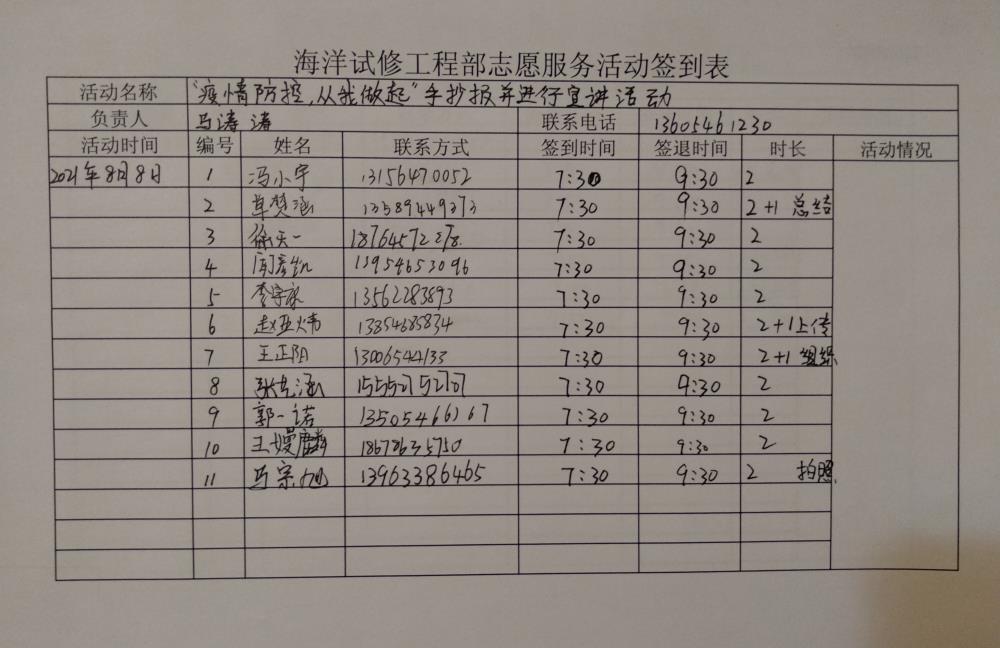 海洋试修工程部志愿服务活动签到表
活动名称 "疫情防控,从我做起"手抄报并进行宣讲活动
负责人 马涛涛 联系电话 13605461230
活动时间 编号 姓名 联系方式 签到时间 签退时间 时长 活动情况
2021年8月8日 1 冯小宇 13156470052 7:30 9:30 2
2 13589449373 7:30 9:30 2+1 总结
3 徐天一 7:30 9:30 2
4 13954653096 7:30 9:30 2
5 13562283893 7:30 9:30 2
6 赵亚炜 13854685834 7:30 9:30 2+1上传
7 王正阳 13006544133 7:30 9:30 2+1 组织
8 15552152727 7:30 9:30 2
9 郭一诺 13505466167 7:30 9:30 2
10 18678635750 7:30 9:30 2
11 马宗旭 13963386465 7:30 9:30 2 拍照